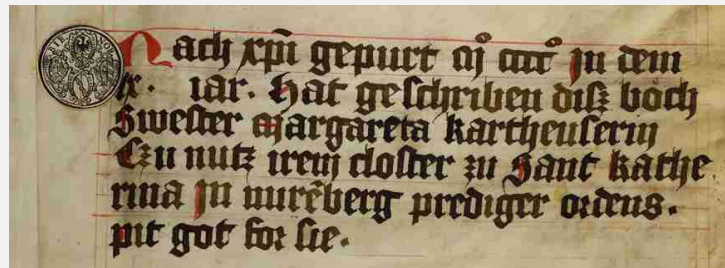 Nach xp̄i gepurt mº ccccº Jn dem
lx. iar. Hat geschriben disz böch
Swester Margareta kartheuserin
Czu nutz irem closter zu Sant kathe
rina Jn nurēberg prediger ordens.
pit got for sie.